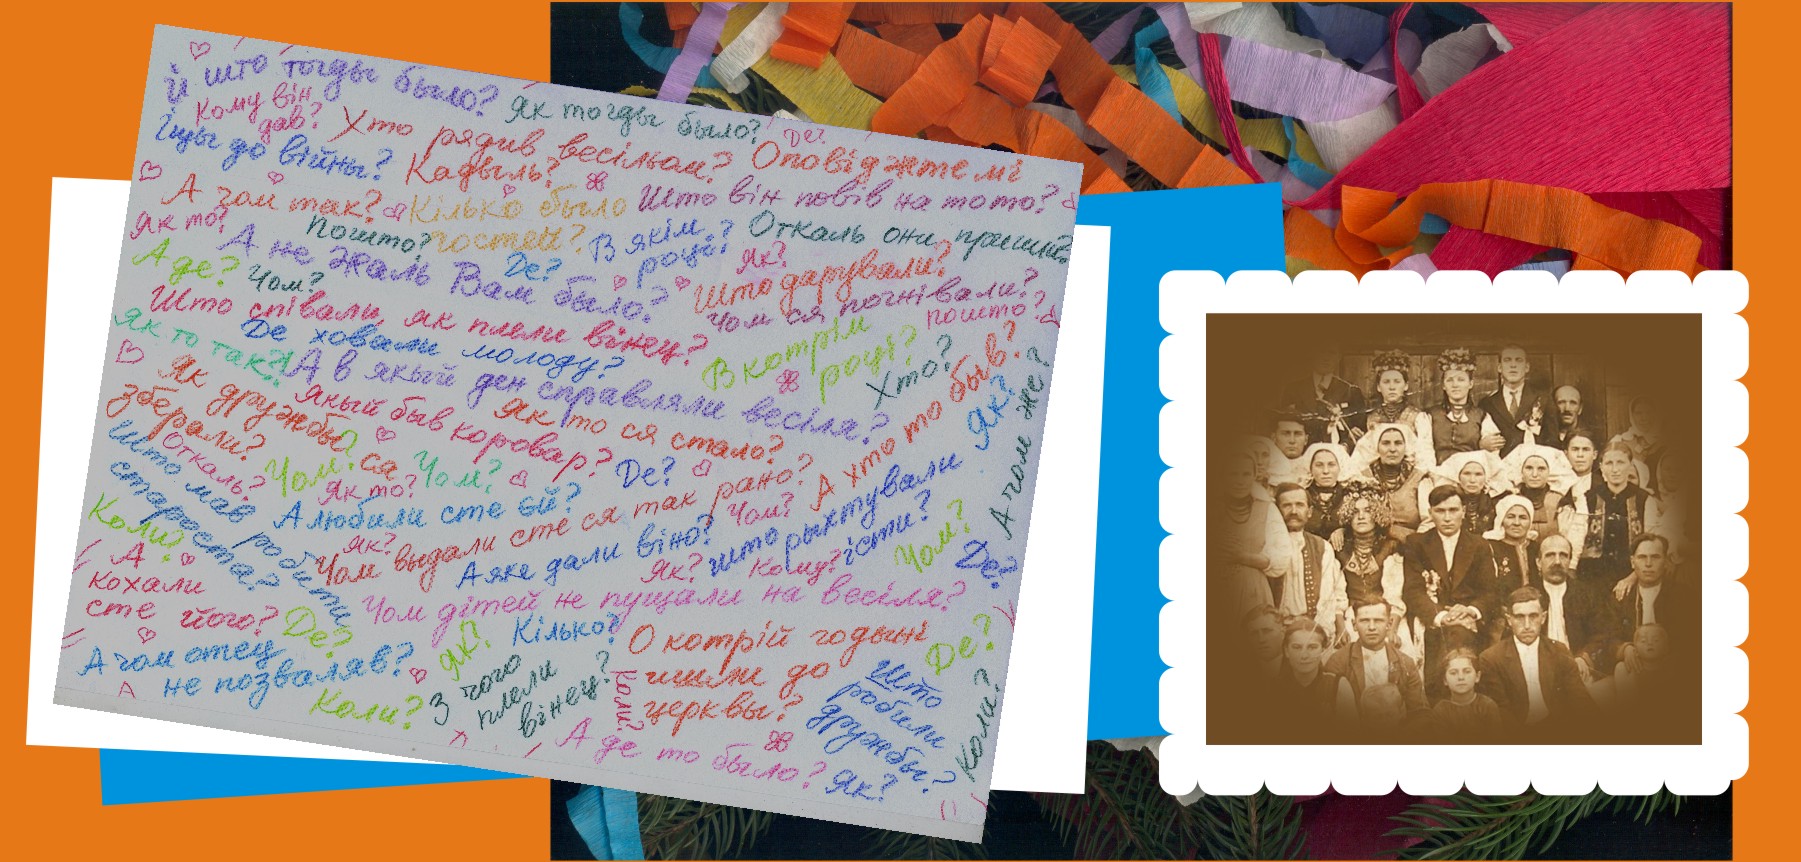 Й што тогды было?
Як тогды было?
Кому він
дав?
Де?
Хто рядив весільом?
Оповіджте мі
Іщы до війны?
Кадыль?
А зам так?
Кілько было
гостей?
Што він повів на тото?
Як то?
Пошто?
В якім
році?
Откаль они пришли?
А не жаль Вам было?
Де?
Як?
А де?
Чом?
Што дарували?
Што співали, як плели вінец?
Чом ся погнівали?
пошто?
Як то так?!
Де ховали молоду?
В котрім
році?
Хто?
А в якый ден справляли весіля?
Як дружбы
зберали?
Якый быв коровар?
Як то ся стало?
А хто то быв?
Як?
А чом же?
Откаль?
Чом?
Як то?
Чом?
Де?
Што мав робити
староста?
А любили сте ій?
Чом выдали сте ся так рано?
са
Чом?
Коли?
Як?
А яке дали віно?
Што рыхтували
їсти?
Як?
Кому?
Чом?
Де?
А
кохали
сте його?
Де?
Чом дітей не пущали на весіля?
Кілько?
О котрій годині
ишли до
церквы?
Де?
А чом отец
не позваляв?
Як?
Коли?
З чого
плели
вінец?
Коли?
Што
робили
дружбы?
Коли?
А де то было?
Як?